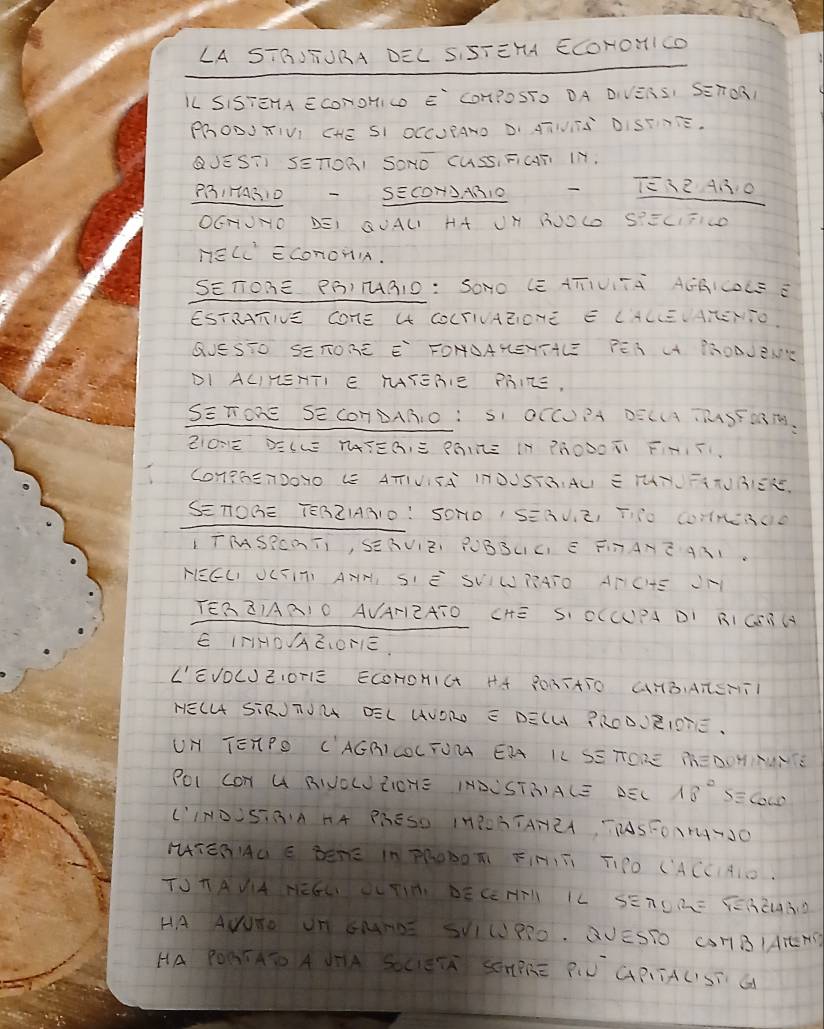 LA STRUTTURA DEL SISTEMA ECONOMICO
IL SISTEMA ECONOMICO E' COMPOSTO DA DIVERSI SETTORI
PRODUTTIVI CHE SI OCCUPANO DI ATTIVITÀ DISTINTE.
QUESTI SETTORI SONO CLASSIFICATI IN.
PRIMARIO - SECONDARIO - TERZIARIO
OGNUNO DEI QUALI HA UN RUOLO SPECIFICO
NELL' ECONOMIA.
SETTORE PRIMARIO: SONO LE ATTIVITÀ AGRICOLE E
ESTRATTIVE COME LA COLTIVAZIONE E L'ALLEVAMENTO.
QUESTO SETTORE E' FONDAMENTALE PER LA PRODUZIONE
DI ALIMENTI E MATERIE PRIME.
SETTORE SECONDARIO: SI OCCUPA DELLA TRASFORMA-
ZIONE DELLE MATERIE PRIME IN PRODOTTI FINITI.
COMPRENDONO LE ATTIVITÀ INDUSTRIALI E MANUFATTURIERE.
SETTORE TERZIARIO: SONO I SERVIZI TIPO COMMERCIO
I TRASPORTI, SERVIZI PUBBLICI E FINANZIARI.
NEGLI ULTIMI ANNI SI È SVILUPPATO ANCHE UN
TERZIARIO AVANZATO CHE SI OCCUPA DI RICERCA
E INNOVAZIONE.
L'EVOLUZIONE ECONOMICA HA PORTATO CAMBIAMENTI
NELLA STRUTTURA DEL LAVORO E DELLA PRODUZIONE.
UN TEMPO L'AGRICOLTURA ERA IL SETTORE PREDOMINANTE
POI CON LA RIVOLUZIONE INDUSTRIALE DEL 18° SECOLO
L'INDUSTRIA HA PRESO IMPORTANZA, TRASFORMANDO
MATERIALI E BENI IN PRODOTTI FINITI TIPO L'ACCIAIO.
TUTTAVIA NEGLI ULTIMI DECENNI IL SETTORE TERZIARIO
HA AVUTO UN GRANDE SVILUPPO. QUESTO CAMBIAMENTO
HA PORTATO A UNA SOCIETÀ SEMPRE PIÙ CAPITALISTICA